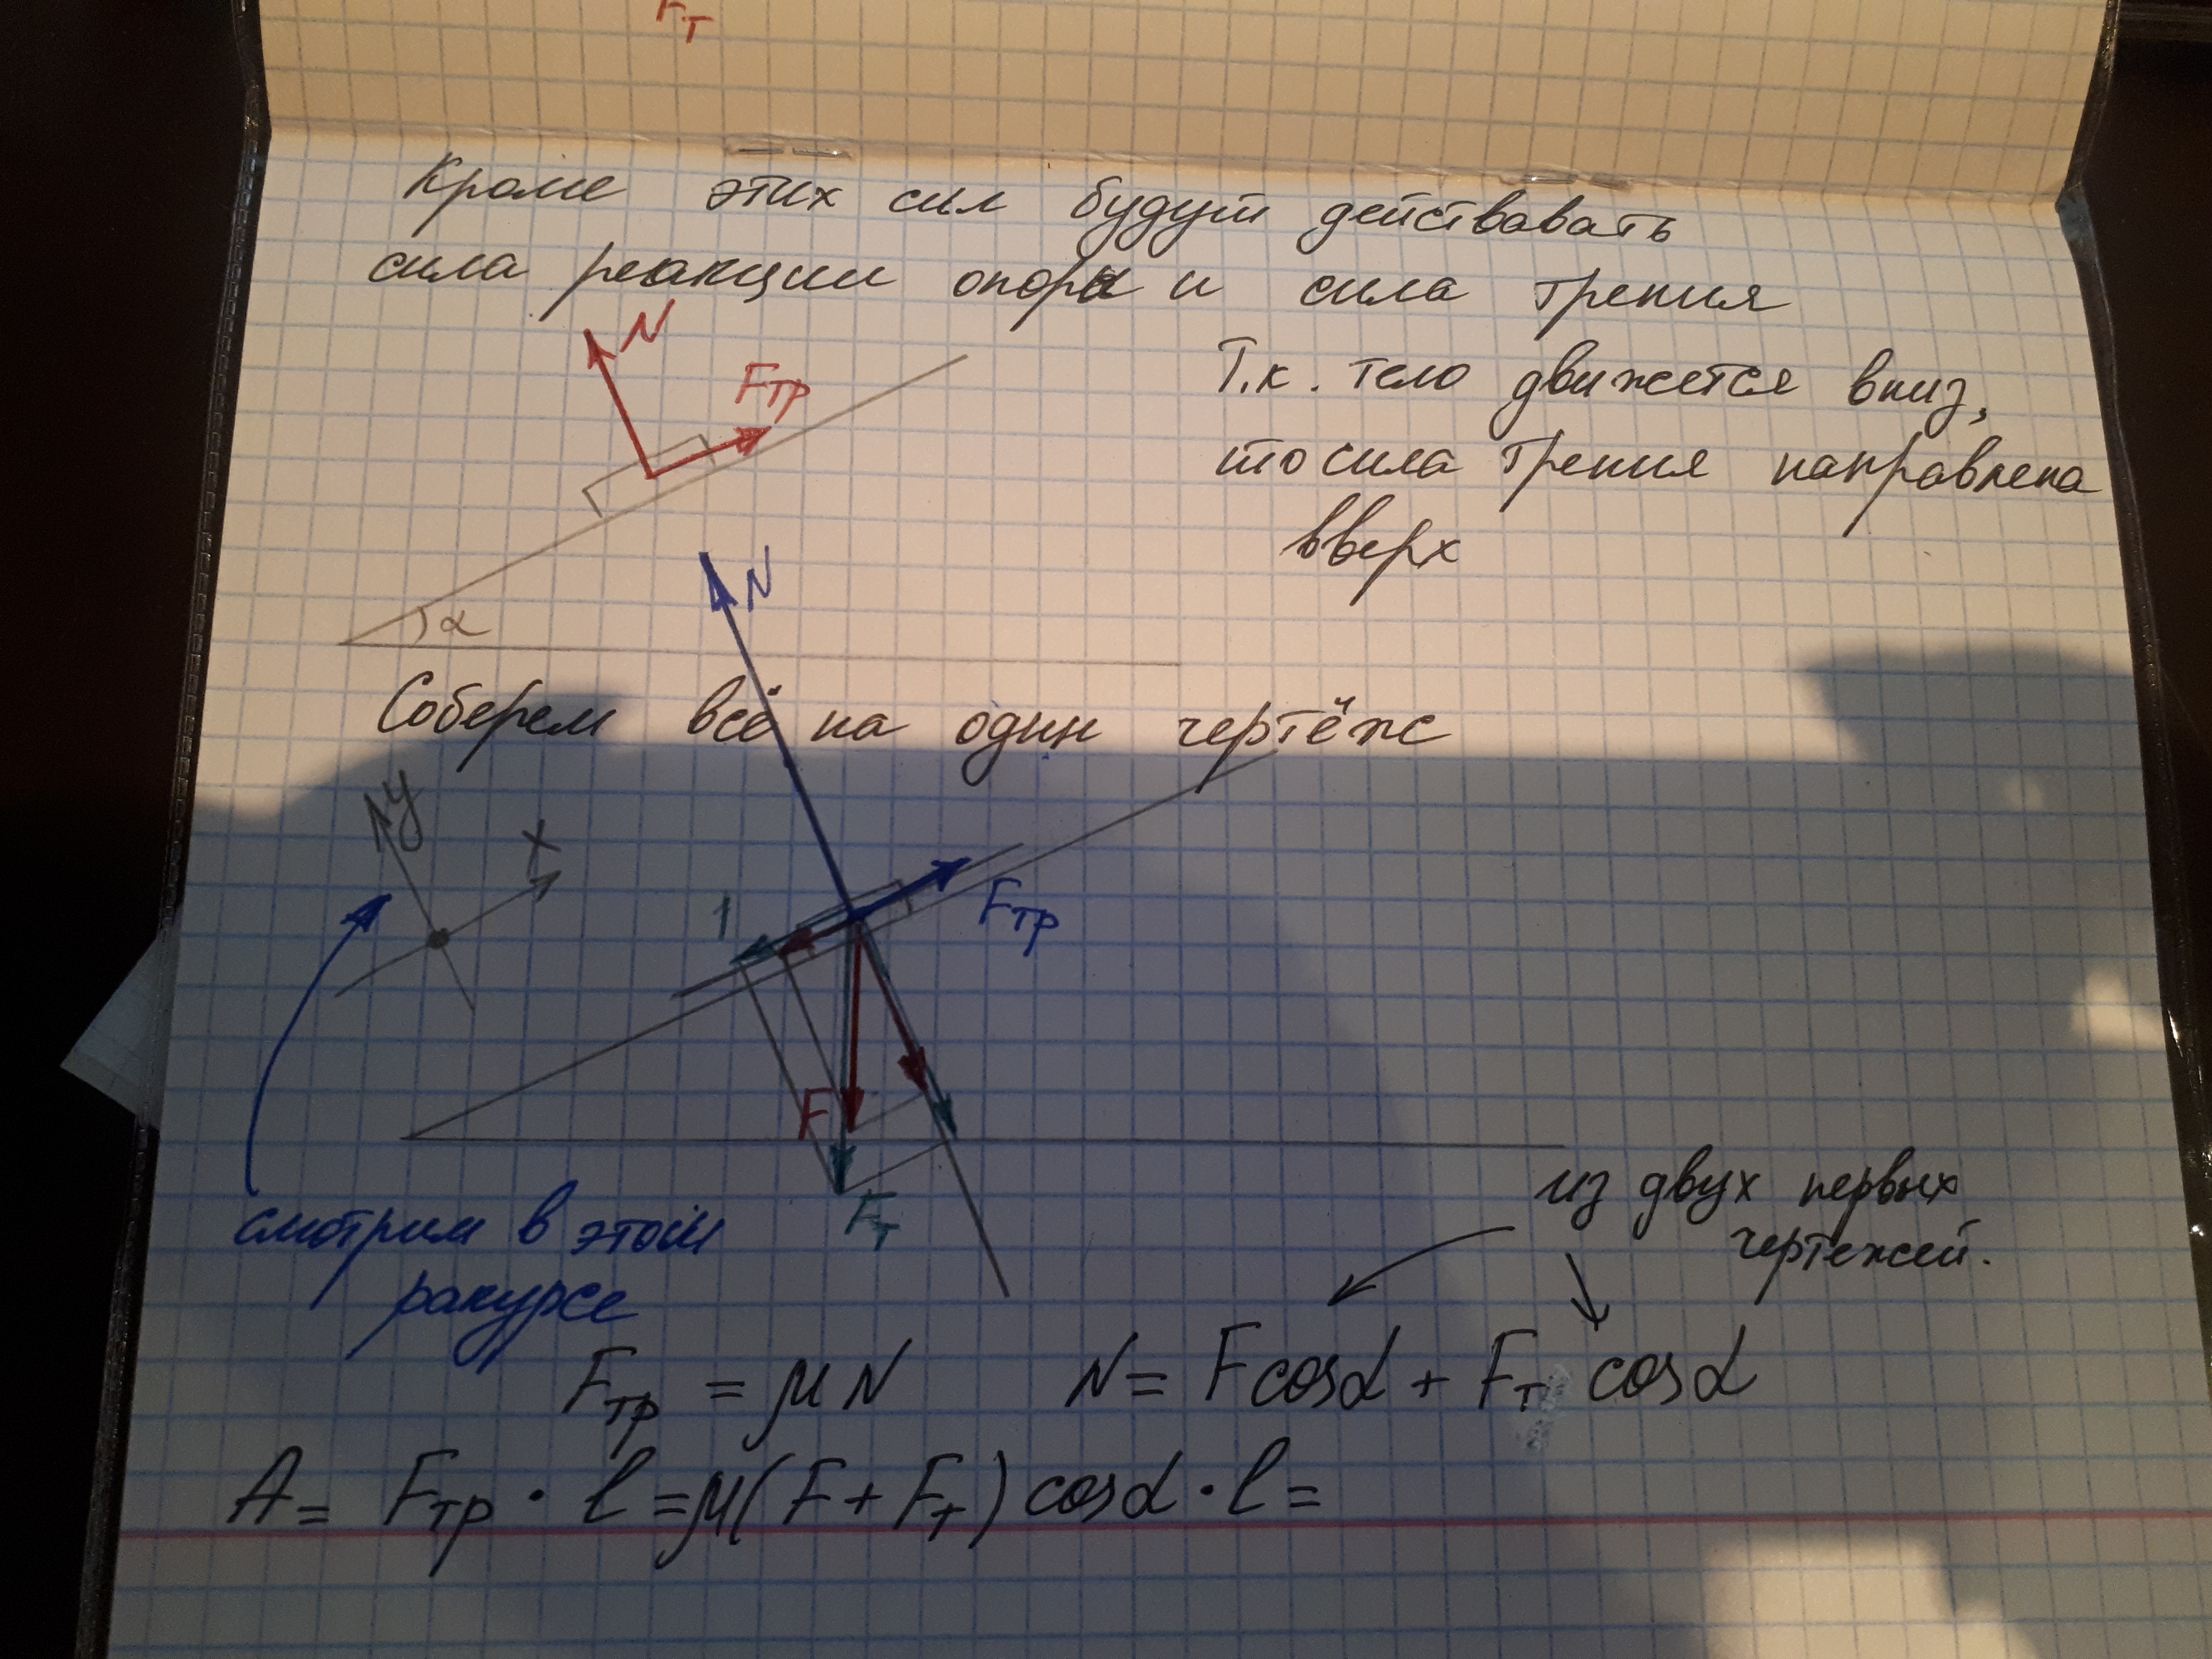 Fт
Кроме этих сил будут действовать
сила реакции опоры и сила трения
N
Fтр
Т.к. тело движется вниз,
то сила трения направлена
вверх
α
N
Соберем всё на один чертёж
y
x
1
Fтр
F
Fт
смотрим в этом
ракурсе
из двух первых
чертежей.
Fтр = μN
N = Fcosα + Fт cosα
A = Fтр · l = μ(F + Fт) cosα · l =